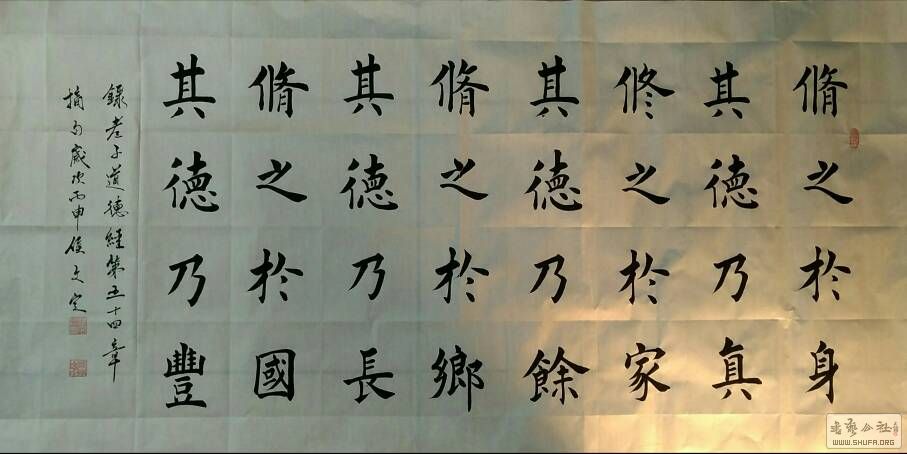 脩之於身
其德乃真
修之於家
其德乃餘
脩之於鄉
其德乃長
脩之於國
其德乃豐
錄老子道德經第五十四章
摘句歲次丙申侯文定
书艺公社
WWW.SHUFA.ORG